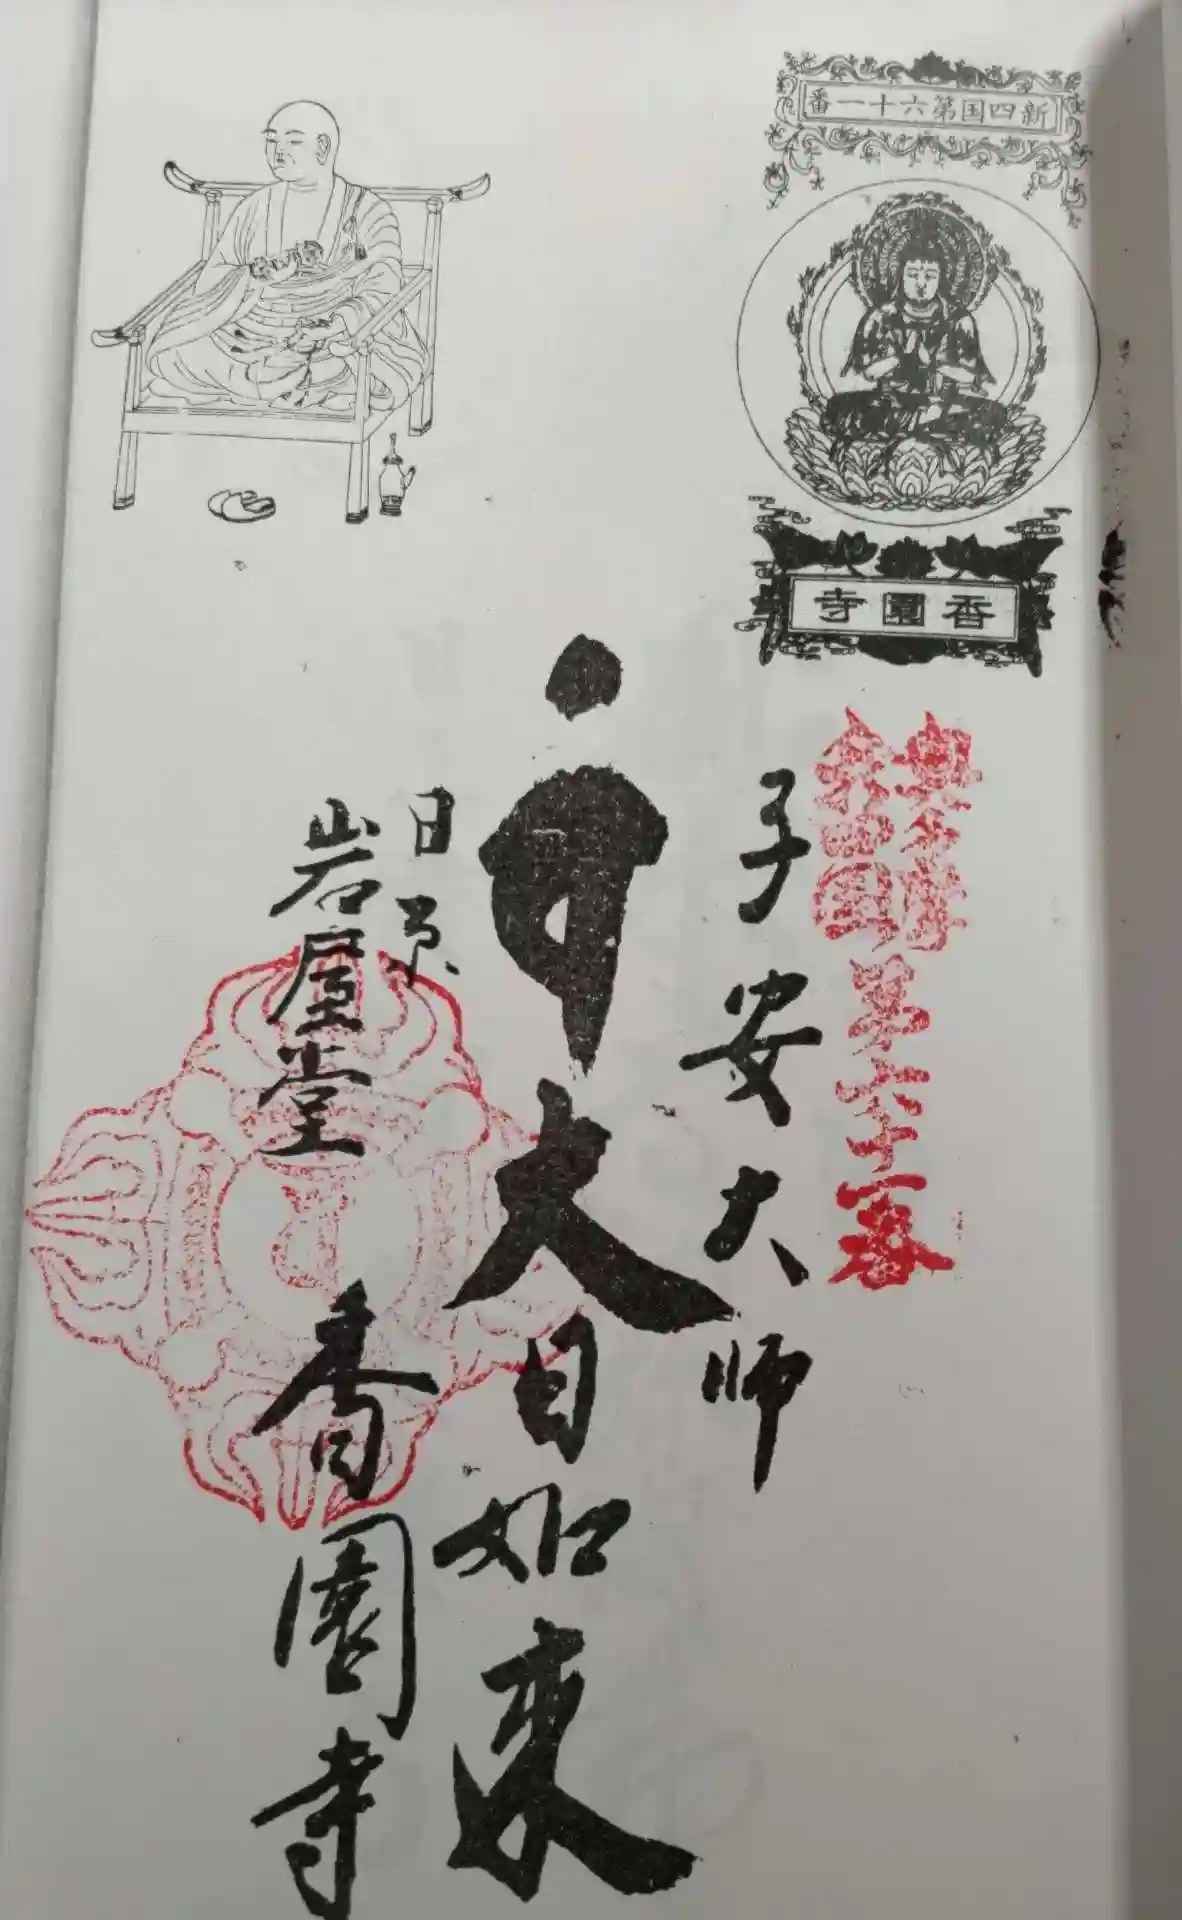 新四国第六十一番
香園寺
奥多摩
新四国
第六十一番
子安大师
大日如来
日原
岩屋堂
香園寺